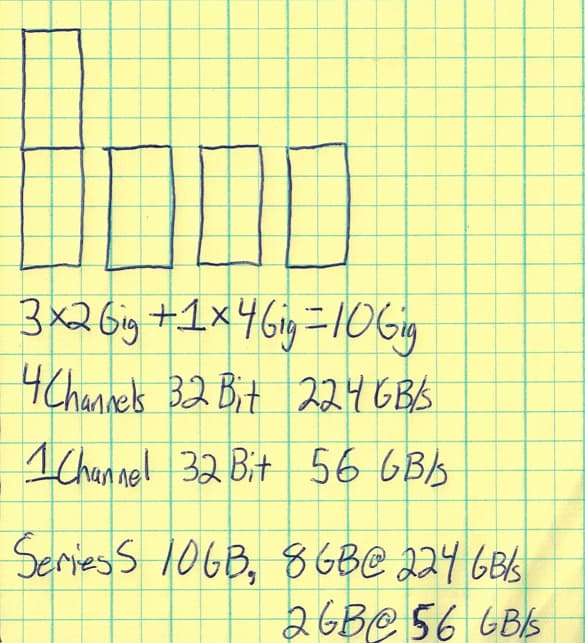 3x2Gig+1x4Gig=10Gig
4Channels 32Bit 224GB/s
1Channel 32Bit 56 GB/s
Series S 10GB, 8GB@ 224GB/s
2GB@ 56 GB/s